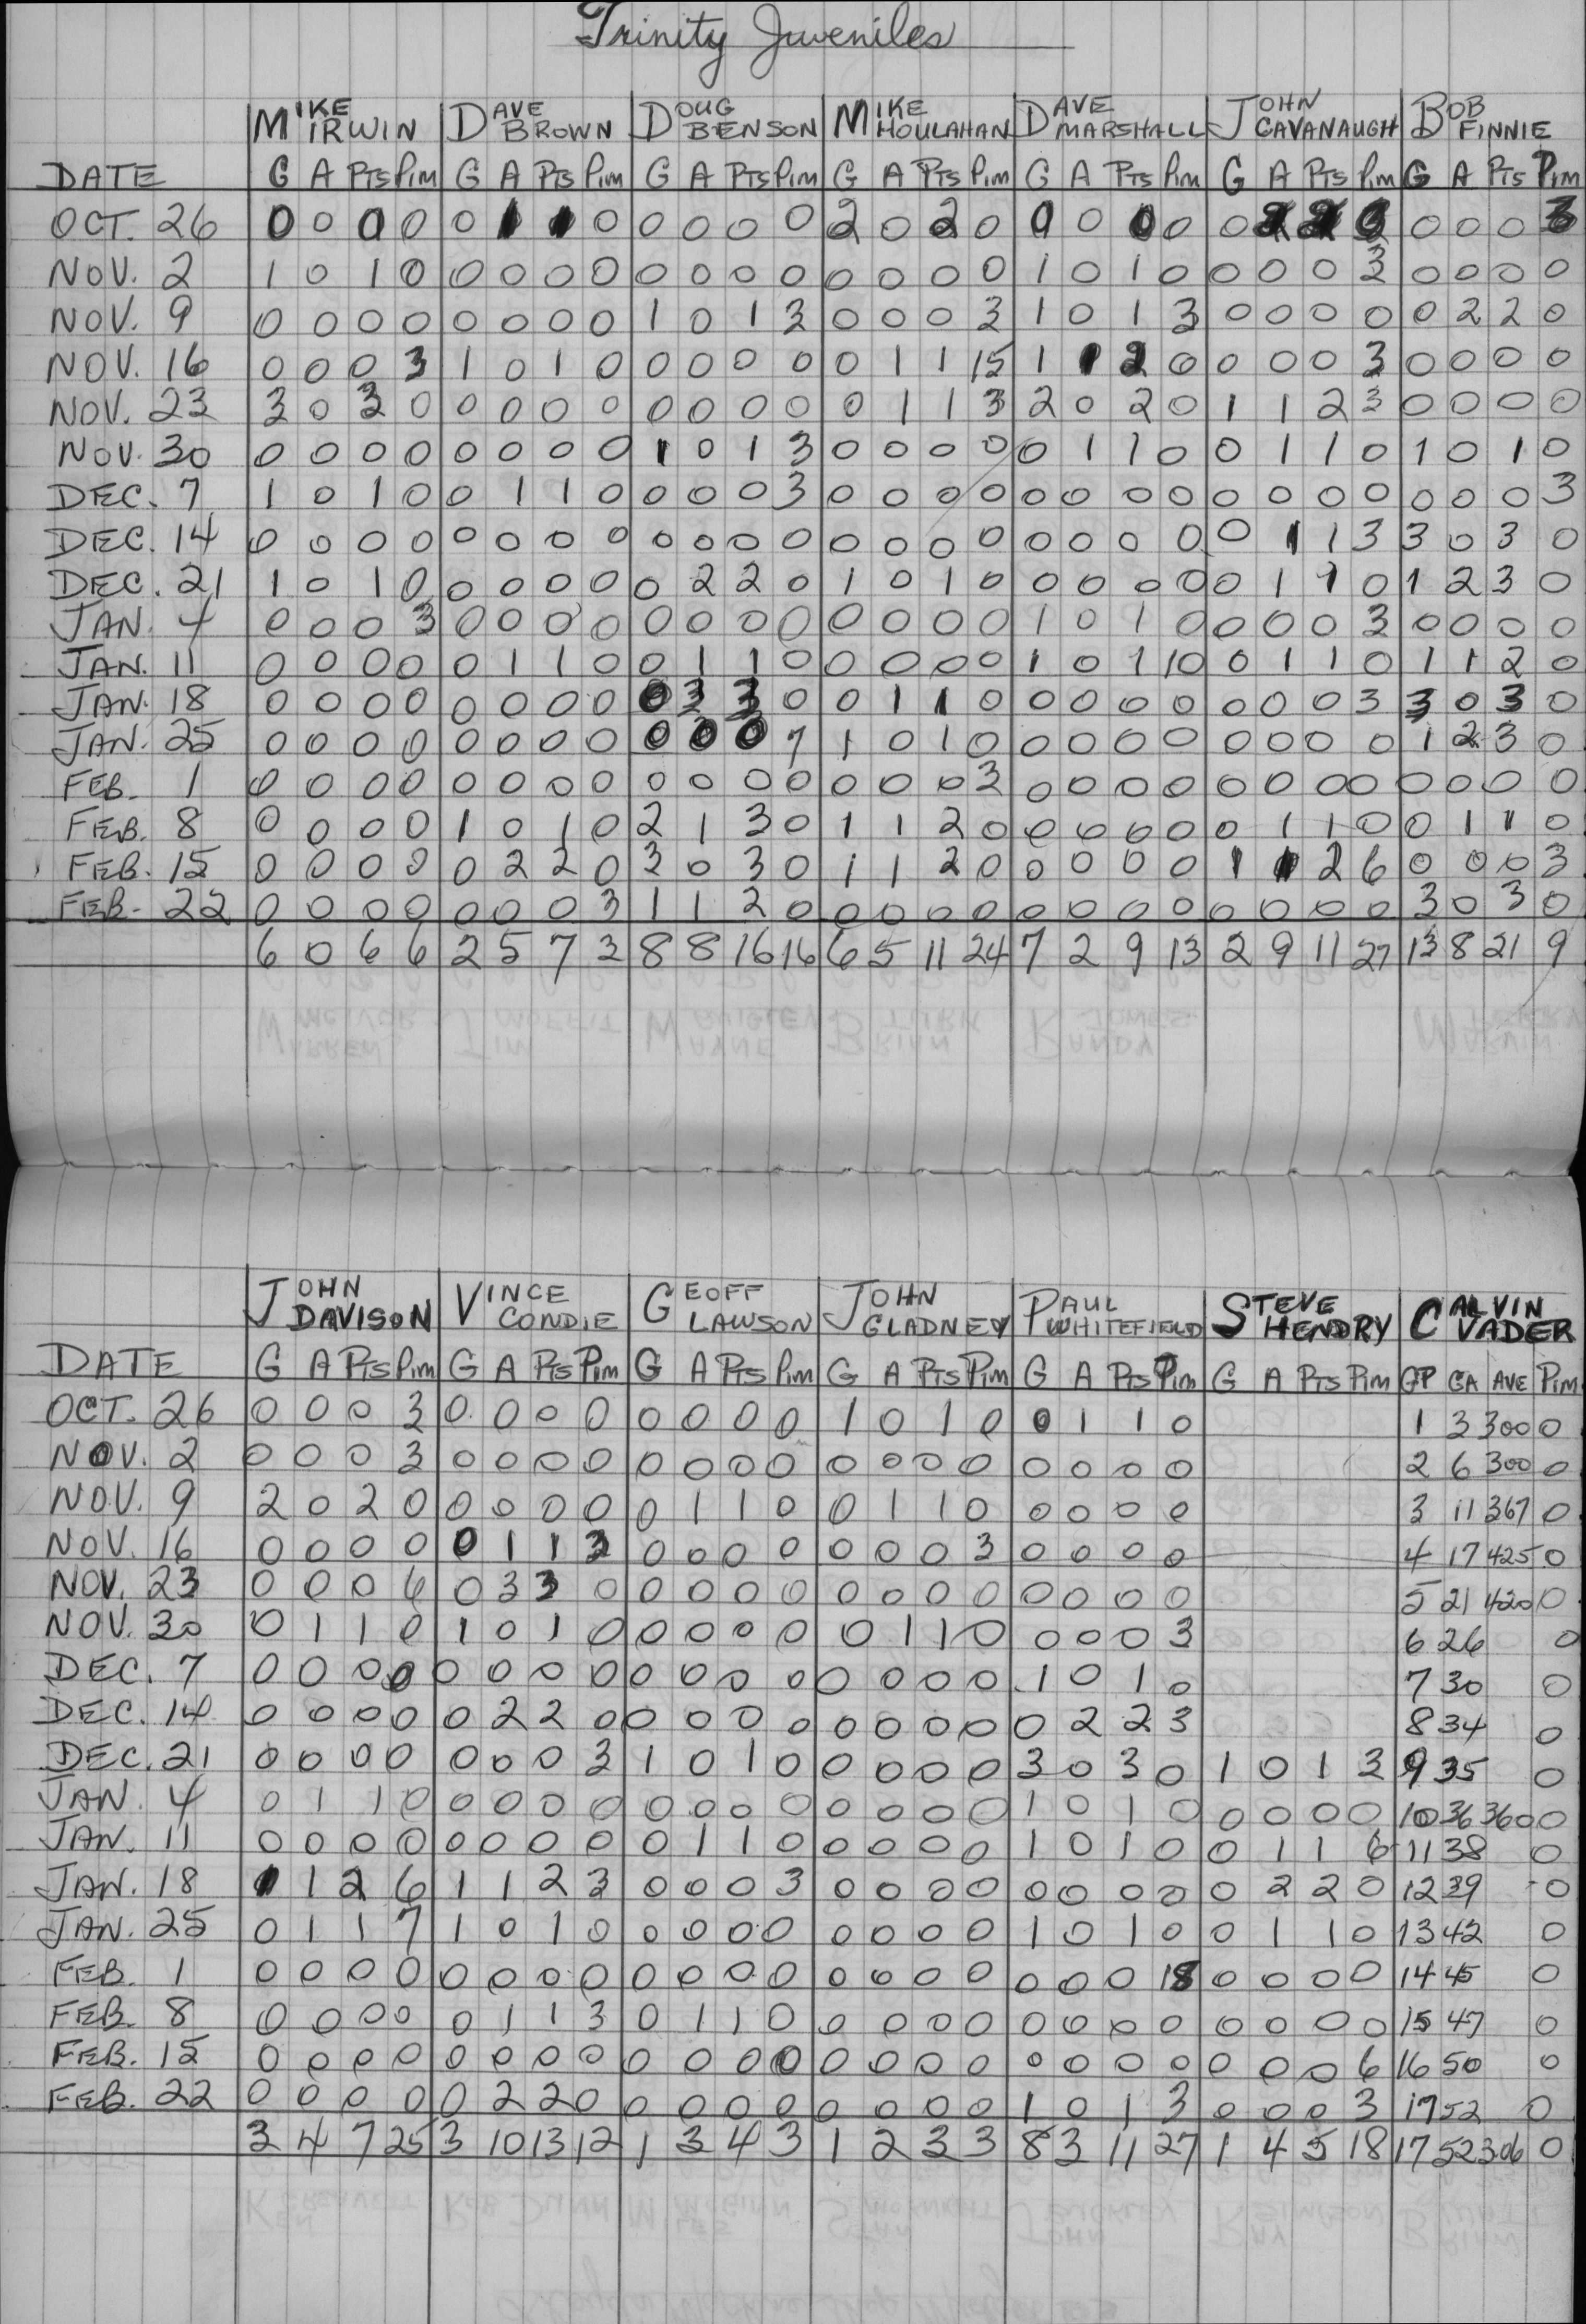 Trinity Juveniles
MIKE IRWIN DAVE BROWN DOUG BENSON MIKE HOULAHAN DAVE MARSHALL JOHN CAVANAUGH BOB FINNIE
DATE G A PTS Pim G A PTS Pim G A PTS Pim G A PTS Pim G A PTS Pim G A PTS Pim G A PTS Pim
OCT. 26 0 0 0 0 0 1 1 0 0 0 0 0 2 0 2 0 0 0 0 0 0 0 0 0 3
NOV. 2 1 0 1 0 0 0 0 0 0 0 0 0 0 0 0 0 1 0 1 0 0 0 0 3 0 0 0 0
NOV. 9 0 0 0 0 0 0 0 0 1 0 1 3 0 0 0 3 1 0 1 3 0 0 0 0 0 2 2 0
NOV. 16 0 0 0 3 1 0 1 0 0 0 0 0 0 1 1 15 1 1 2 0 0 0 0 3 0 0 0 0
NOV. 23 3 0 3 0 0 0 0 0 0 0 0 0 0 1 1 3 2 0 2 0 1 1 2 3 0 0 0 0
NOV. 30 0 0 0 0 0 0 0 0 1 0 1 3 0 0 0 0 0 1 1 0 0 1 1 0 1 0 1 0
DEC. 7 1 0 1 0 0 1 1 0 0 0 0 3 0 0 0 0 0 0 0 0 0 0 0 0 0 0 0 3
DEC. 14 0 0 0 0 0 0 0 0 0 0 0 0 0 0 0 0 0 0 0 0 0 1 1 3 3 0 3 0
DEC. 21 1 0 1 0 0 0 0 0 0 2 2 0 1 0 1 0 0 0 0 0 0 1 1 0 1 2 3 0
JAN. 4 0 0 0 3 0 0 0 0 0 0 0 0 0 0 0 0 1 0 1 0 0 0 0 3 0 0 0 0
JAN. 11 0 0 0 0 0 1 1 0 0 1 1 0 0 0 0 0 1 0 1 10 0 1 1 0 1 1 2 0
JAN. 18 0 0 0 0 0 0 0 0 0 3 3 0 0 1 1 0 0 0 0 0 0 0 0 3 3 0 3 0
JAN. 25 0 0 0 0 0 0 0 0 0 0 0 7 1 0 1 0 0 0 0 0 0 0 0 0 1 2 3 0
FEB. 1 0 0 0 0 0 0 0 0 0 0 0 0 0 0 0 3 0 0 0 0 0 0 0 0 0 0 0 0
FEB. 8 0 0 0 0 1 0 1 0 2 1 3 0 1 1 2 0 0 0 0 0 0 1 1 0 0 1 1 0
FEB. 15 0 0 0 0 0 2 2 0 3 0 3 0 1 1 2 0 0 0 0 0 1 1 2 6 0 0 0 3
FEB. 22 0 0 0 0 0 0 0 3 1 1 2 0 0 0 0 0 0 0 0 0 0 0 0 0 3 0 3 0
6 0 6 6 2 5 7 3 8 8 16 16 6 5 11 24 7 2 9 13 2 9 11 27 13 8 21 9
JOHN DAVISON VINCE CONDIE GEOFF LAWSON JOHN GLADNEY PAUL WHITEFIELD STEVE HENDRY CALVIN VADER
DATE G A PTS Pim G A PTS Pim G A PTS Pim G A PTS Pim G A PTS Pim G A PTS Pim GP GA AVE Pim
OCT. 26 0 0 0 3 0 0 0 0 0 0 0 0 1 0 1 0 0 1 1 0 1 3 300 0
NOV. 2 0 0 0 3 0 0 0 0 0 0 0 0 0 0 0 0 0 0 0 0 2 6 300 0
NOV. 9 2 0 2 0 0 0 0 0 0 1 1 0 0 1 1 0 0 0 0 0 3 11 367 0
NOV. 16 0 0 0 0 0 1 1 3 0 0 0 0 0 0 0 3 0 0 0 0 4 17 425 0
NOV. 23 0 0 0 6 0 3 3 0 0 0 0 0 0 0 0 0 0 0 0 0 5 21 420 0
NOV. 30 0 1 1 0 1 0 1 0 0 0 0 0 0 1 1 0 0 0 0 3 6 26 0
DEC. 7 0 0 0 0 0 0 0 0 0 0 0 0 0 0 0 0 1 0 1 0 7 30 0
DEC. 14 0 0 0 0 0 2 2 0 0 0 0 0 0 0 0 0 0 2 2 3 8 34 0
DEC. 21 0 0 0 0 0 0 0 3 1 0 1 0 0 0 0 0 3 0 3 0 1 0 1 3 9 35 0
JAN. 4 0 1 1 0 0 0 0 0 0 0 0 0 0 0 0 0 1 0 1 0 0 0 0 0 10 36 360 0
JAN. 11 0 0 0 0 0 0 0 0 0 1 1 0 0 0 0 0 1 0 1 0 0 1 1 6 11 38 0
JAN. 18 1 1 2 6 1 1 2 3 0 0 0 3 0 0 0 0 0 0 0 0 0 2 2 0 12 39 0
JAN. 25 0 1 1 7 1 0 1 0 0 0 0 0 0 0 0 0 1 0 1 0 0 1 1 0 13 42 0
FEB. 1 0 0 0 0 0 0 0 0 0 0 0 0 0 0 0 0 0 0 0 18 0 0 0 0 14 45 0
FEB. 8 0 0 0 0 0 1 1 3 0 1 1 0 0 0 0 0 0 0 0 0 0 0 0 0 15 47 0
FEB. 15 0 0 0 0 0 0 0 0 0 0 0 0 0 0 0 0 0 0 0 0 0 0 0 6 16 50 0
FEB. 22 0 0 0 0 0 2 2 0 0 0 0 0 0 0 0 0 1 0 1 3 0 0 0 3 17 52 0
3 4 7 25 3 10 13 12 1 3 4 3 1 2 3 3 8 3 11 27 1 4 5 18 17 52 3.06 0